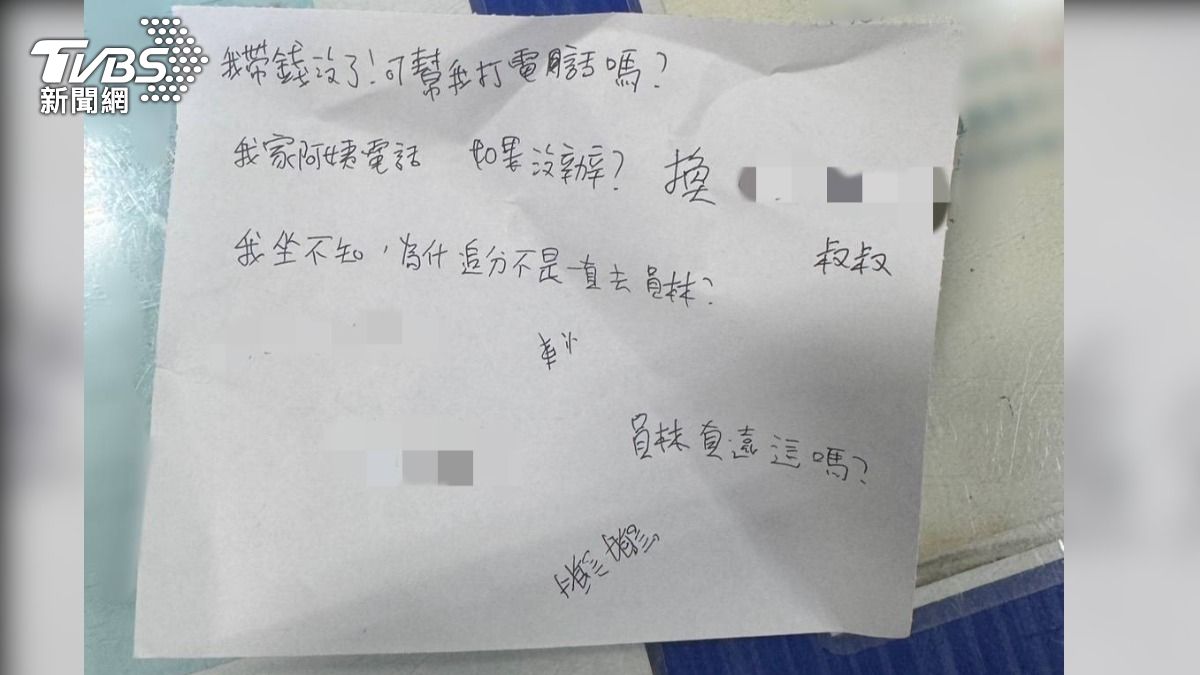 TVBS
新聞網
我帶錢沒了!可幫我打電話嗎?
我家阿姨電話 如果沒辦? 換
叔叔
我坐不知,為什追分不是一直去員林?
員林有遠這嗎?